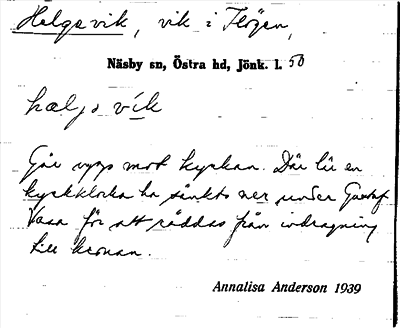 Helgevik, vik i Flögen,
Näsby sn, Östra hd, Jönk. l. 50
hæljə vík
Går upp mot kyrkan. Där lär en
kyrkklocka ha sänkts ner under Gustaf
Vasa för att räddas från indragning
till kronan.
Annalisa Anderson 1939